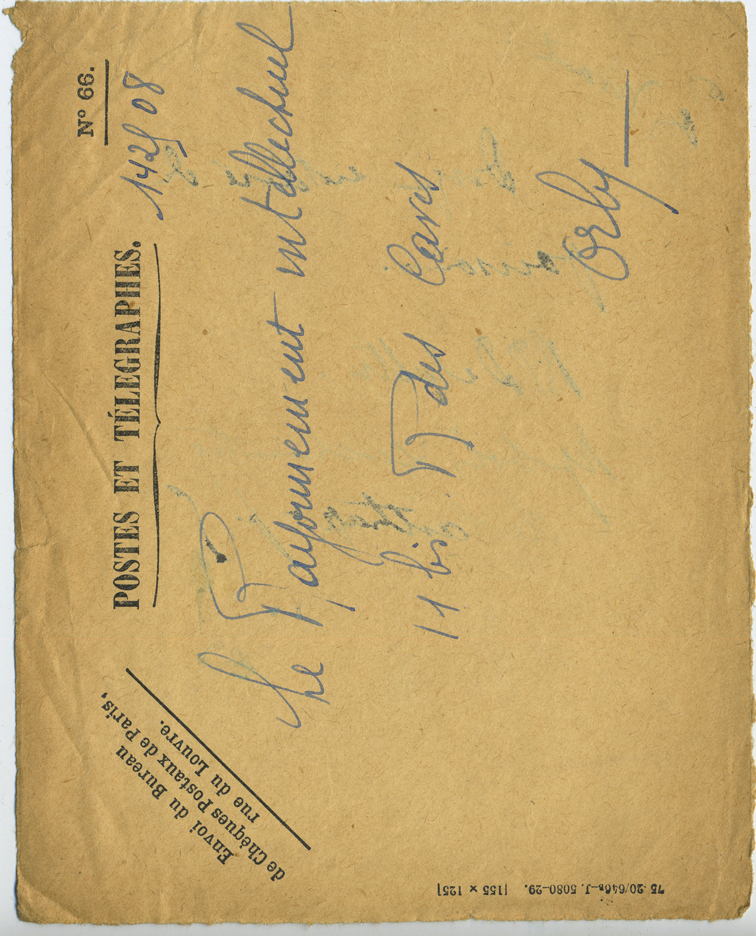 N° 66.
POSTES ET TÉLÉGRAPHES.
142508
Envoi du Bureau
de Chèques Postaux de Paris,
rue du Louvre.
Le Rayonnement intellectuel
11 bis R des Caves
Orly
75-20/646 J. 5080-29. [155 × 125]